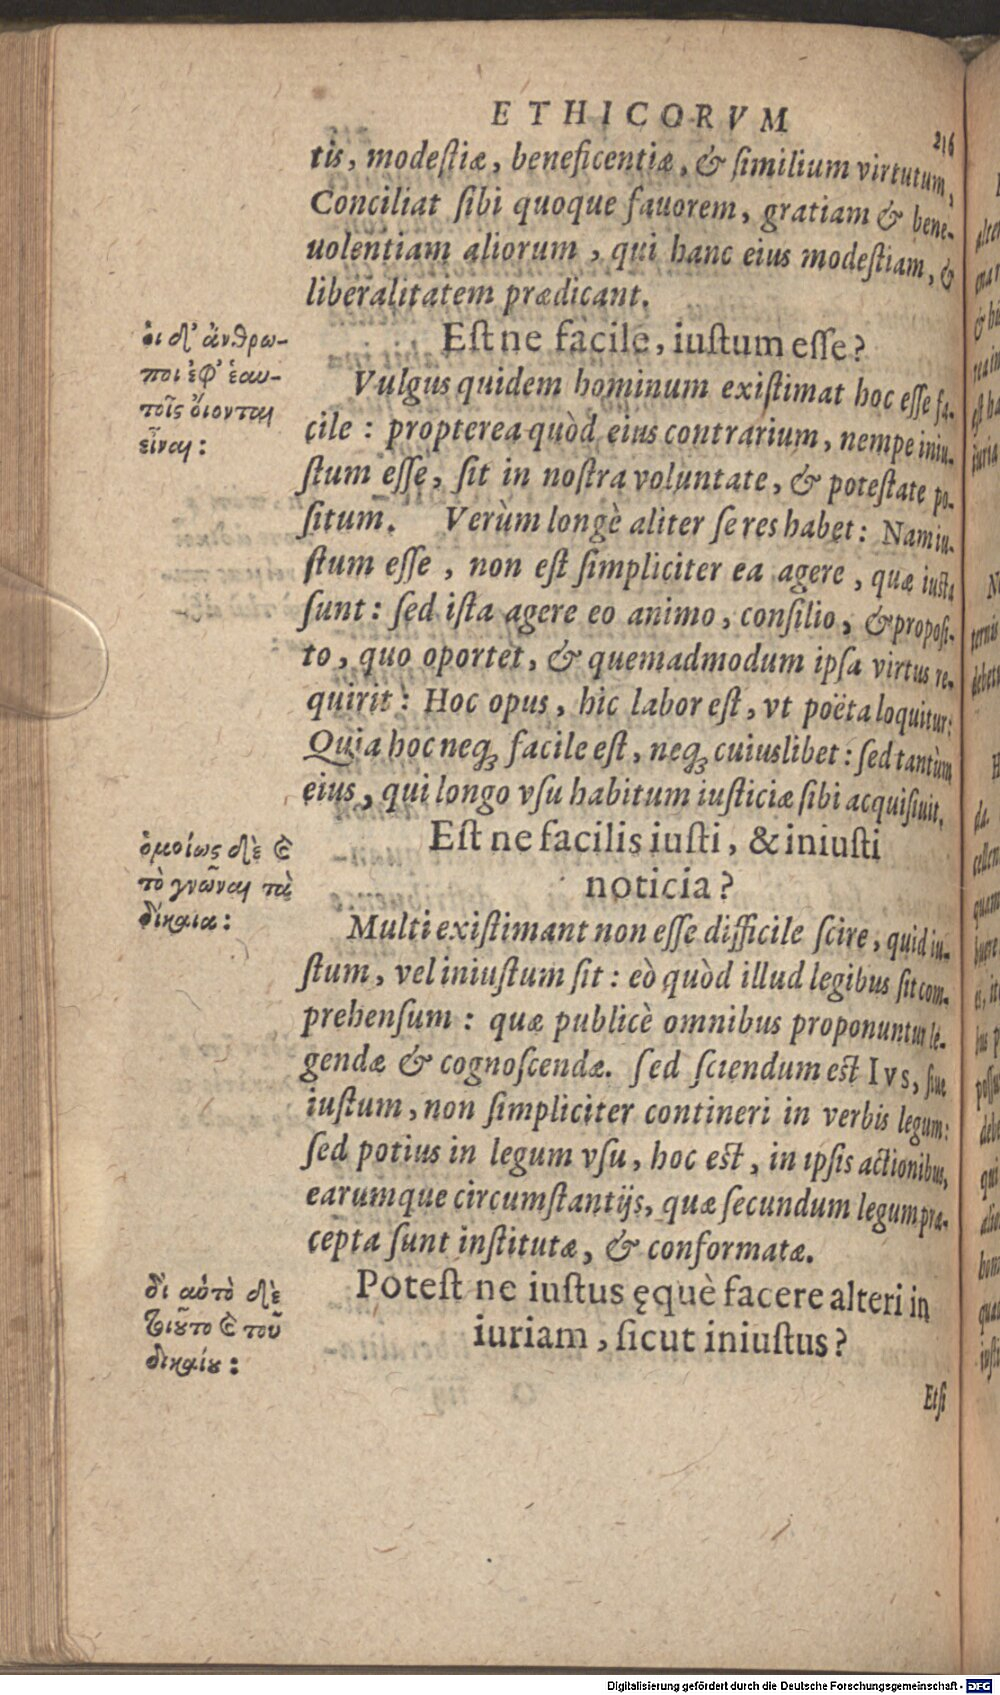 ETHICORVM
216
tis, modeſtiæ, beneficentiæ, & ſimilium virtutum,
Conciliat ſibi quoque fauorem, gratiam & bene-
uolentiam aliorum, qui hanc eius modeſtiam, &
liberalitatem prædicant.
οἱ δ' ἄνθρω-
ποι ἐφ' ἑαυ-
τοῖς οἴονται
εἶναι:
Eſt ne facile, iuſtum eſſe?
Vulgus quidem hominum exiſtimat hoc eſſe fa-
cile: propterea quòd eius contrarium, nempe iniu-
ſtum eſſe, ſit in noſtra voluntate, & poteſtate po-
ſitum. Verùm longè aliter ſe res habet: Nam iu-
ſtum eſſe, non eſt ſimpliciter ea agere, quæ iuſta
ſunt: ſed iſta agere eo animo, conſilio, & propoſi-
to, quo oportet, & quemadmodum ipſa virtus re-
quirit: Hoc opus, hic labor eſt, vt poëta loquitur:
Quia hoc neq; facile eſt, neq; cuiuslibet: ſed tantùm
eius, qui longo vſu habitum iuſticiæ ſibi acquiſiuit.
ὁμοίως δὲ καὶ
τὸ γνῶναι τὰ
δίκαια:
Eſt ne facilis iuſti, & iniuſti
noticia?
Multi exiſtimant non eſſe difficile ſcire, quid iu-
ſtum, vel iniuſtum ſit: eò quòd illud legibus ſit com-
prehenſum: quæ publicè omnibus proponuntur le-
gendæ & cognoſcendæ. ſed ſciendum eſt Ivs, ſiue
iuſtum, non ſimpliciter contineri in verbis legum:
ſed potius in legum vſu, hoc eſt, in ipſis actionibus,
earumque circumſtantijs, quæ ſecundum legum præ-
cepta ſunt inſtitutæ, & conformatæ.
δι' αὐτὸ δὲ
τοῦτο καὶ τοῦ
δικαίου:
Poteſt ne iuſtus ęquè facere alteri in
iuriam, ſicut iniuſtus?
Etſi
Digitalisierung gefördert durch die Deutsche Forschungsgemeinschaft - DFG